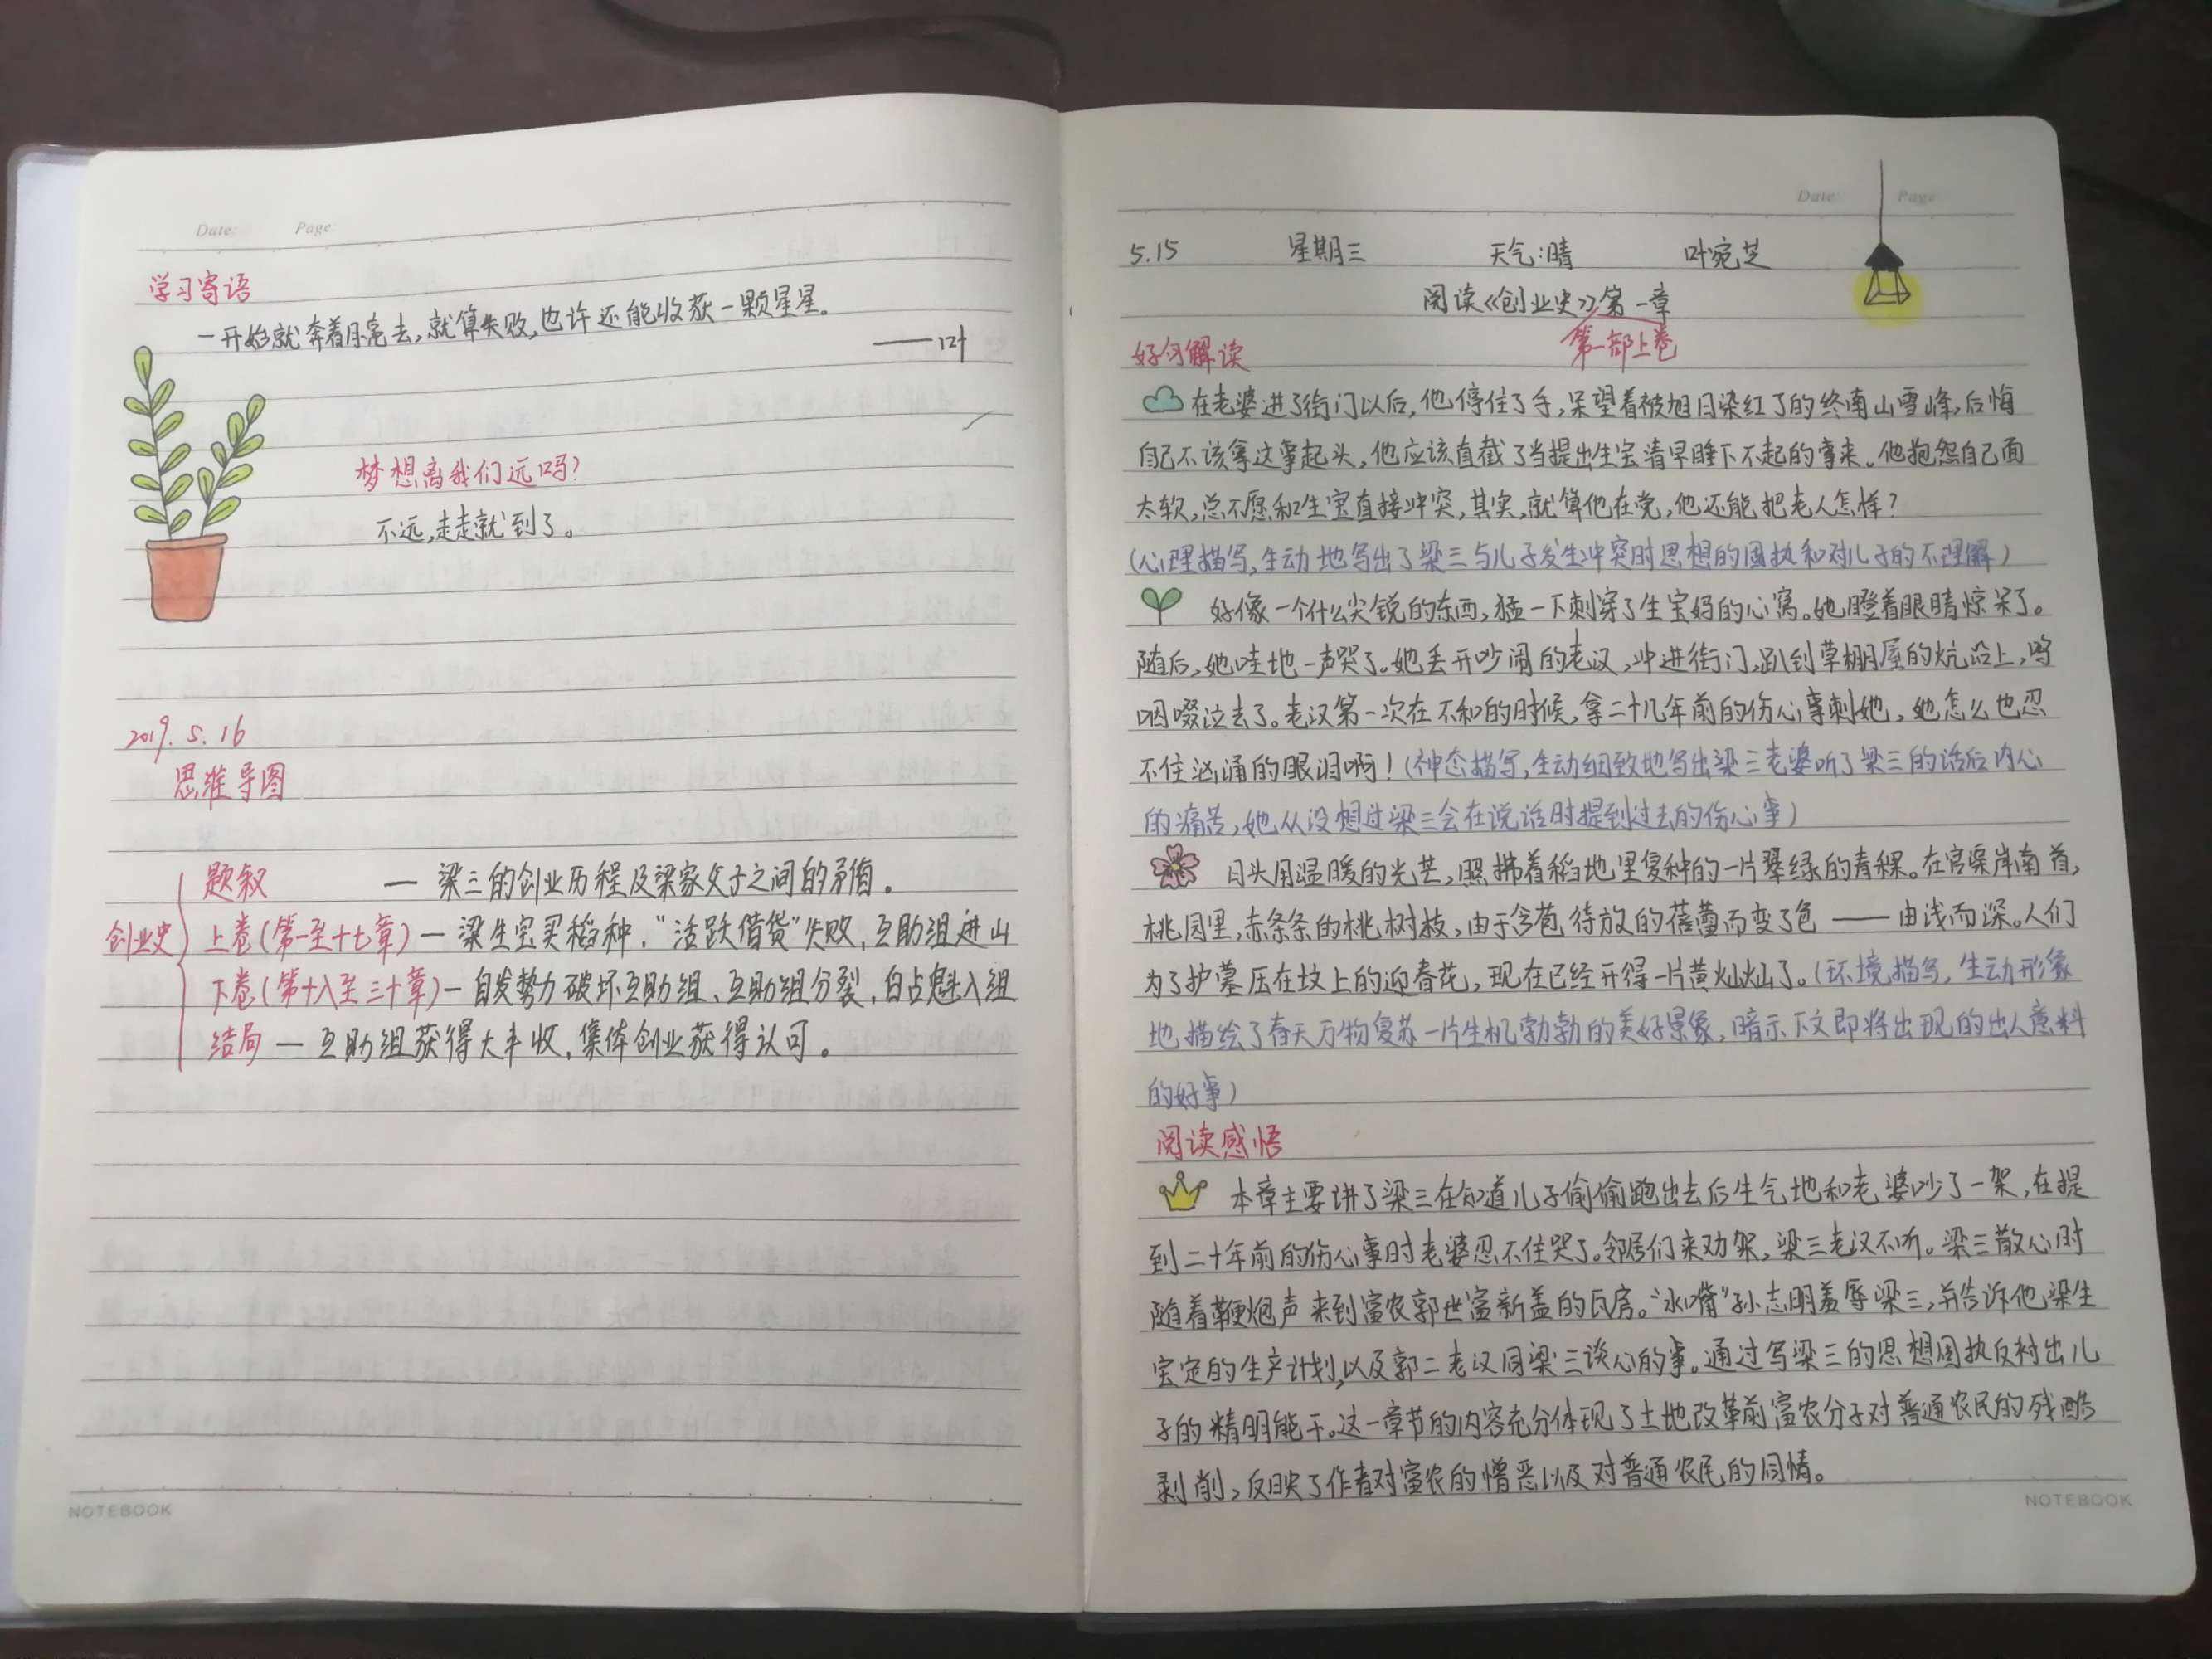 Date: Page
学习寄语
一开始就奔着月亮去,就算失败,也许还能收获一颗星星。
——叶
梦想离我们远吗?
不远,走走就到了。
2019.5.16
思维导图
题叙 — 梁三的创业历程及梁家父子之间的矛盾。
创业史 上卷(第一至十七章)— 梁生宝买稻种,“活跃借贷”失败,互助组进山
下卷(第十八至三十章)— 自发势力破坏互助组、互助组分裂,白占魁入组
结局 — 互助组获得大丰收,集体创业获得认可。
NOTEBOOK
Date: Page
5.15 星期三 天气:晴 叶宛芝
阅读《创业史》第一章
第一部上卷
好句解读
在老婆进了街门以后,他停住了手,呆望着被旭日染红了的终南山雪峰,后悔
自己不该拿这事起头,他应该直截了当提出生宝清早睡下不起的事来。他抱怨自己面
太软,总不愿和生宝直接冲突,其实,就算他在党,他还能把老人怎样?
(心理描写,生动地写出了梁三与儿子发生冲突时思想的固执和对儿子的不理解)
好像一个什么尖锐的东西,猛一下刺穿了生宝妈的心窝。她瞪着眼睛惊呆了。
随后,她哇地一声哭了。她丢开吵闹的老汉,冲进街门,趴到草棚屋的炕沿上,呜
咽啜泣去了。老汉第一次在不和的时候,拿二十几年前的伤心事刺她,她怎么也忍
不住汹涌的眼泪啊!(神态描写,生动细致地写出梁三老婆听了梁三的话后内心
的痛苦,她从没想过梁三会在说话时提到过去的伤心事)
日头用温暖的光芒,照拂着稻地里复种的一片翠绿的青稞。在官渠岸南首,
桃园里,赤条条的桃树枝,由于含苞待放的蓓蕾而变了色——由浅而深。人们
为了护墓压在坟上的迎春花,现在已经开得一片黄灿灿了。(环境描写,生动形象
地描绘了春天万物复苏一片生机勃勃的美好景象,暗示下文即将出现的出人意料
的好事)
阅读感悟
本章主要讲了梁三在知道儿子偷偷跑出去后生气地和老婆吵了一架,在提
到二十年前的伤心事时老婆忍不住哭了。邻居们来劝架,梁三老汉不听。梁三散心时
随着鞭炮声来到富农郭世富新盖的瓦房。“水嘴”孙志明羞辱梁三,并告诉他梁生
宝定的生产计划,以及郭二老汉同梁三谈心的事。通过写梁三的思想固执反衬出儿
子的精明能干。这一章节的内容充分体现了土地改革前富农分子对普通农民的残酷
剥削,反映了作者对富农的憎恶以及对普通农民的同情。
NOTEBOOK